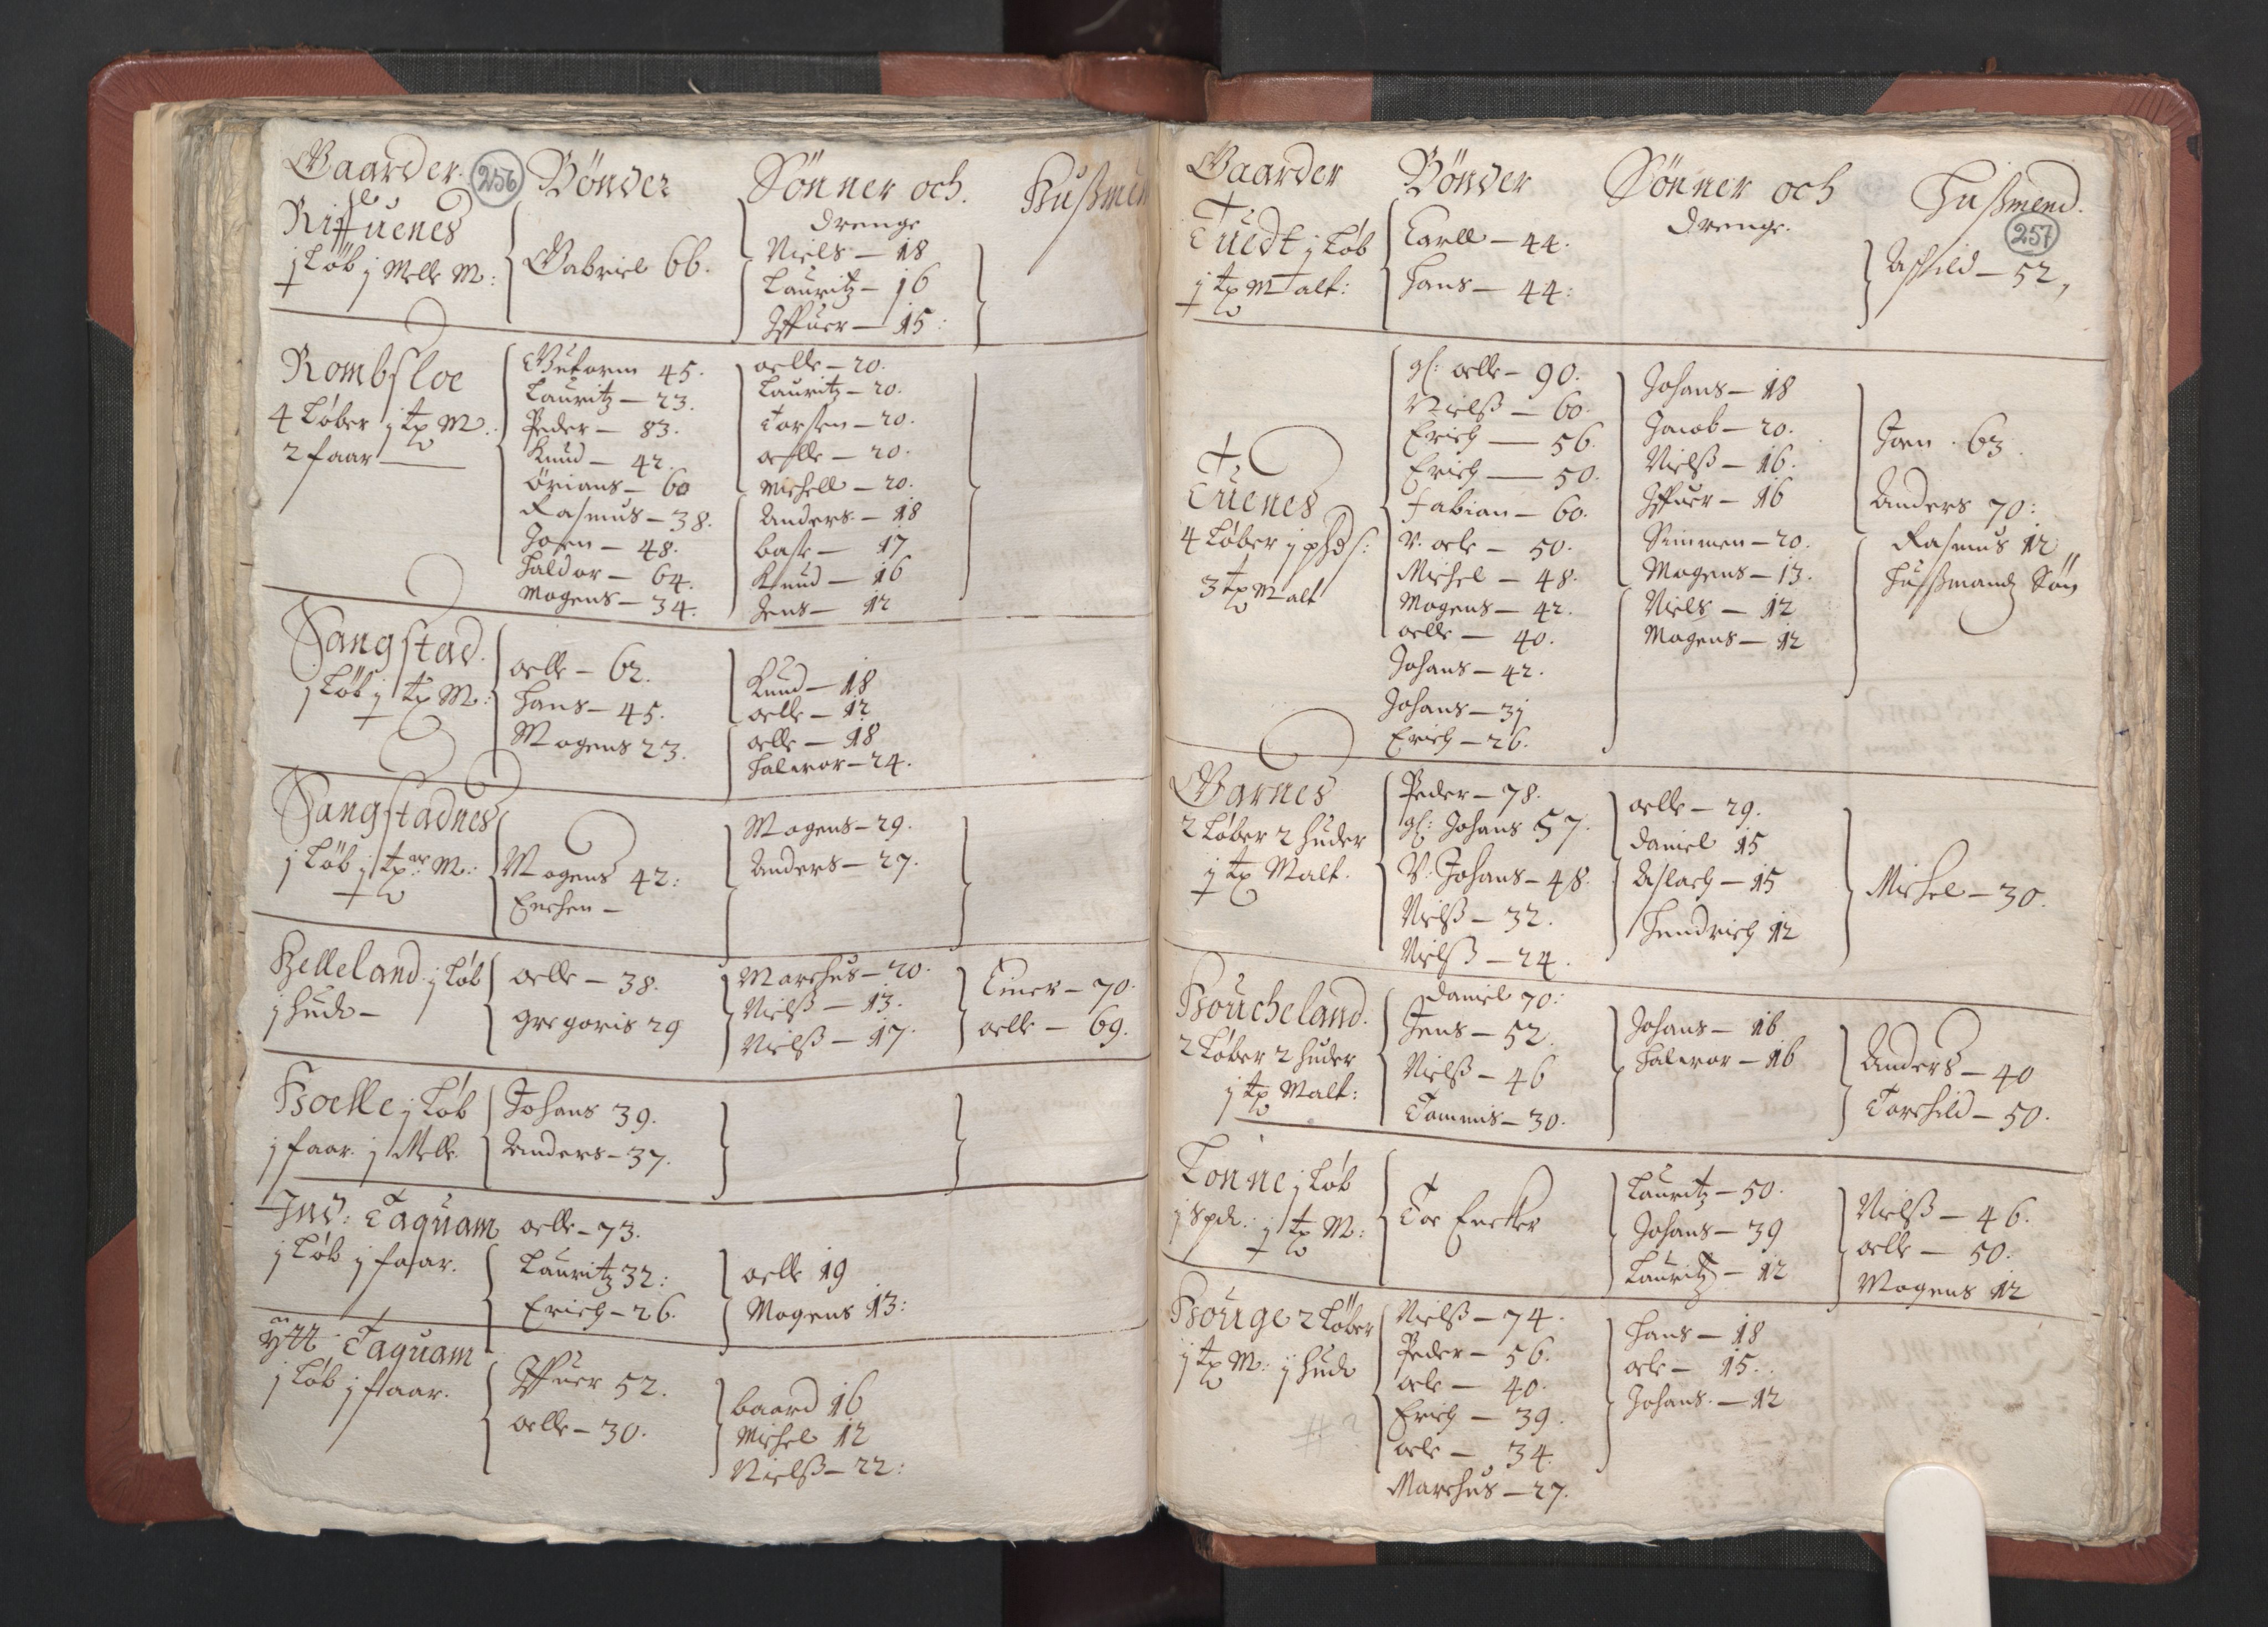 Gaarder. 256 Bönder Sönner och. Hußmen
drenge
Riffuenes
j Löb j Melle M:
Gabriel 66.
Niels — 18
Lauritz — 16
Iffuer — 15:
Rombsloe
4 Löber j tp M.
2 faar
Guttorm 45.
Lauritz — 23.
Peder — 83.
Knud — 42.
Örians — 60
Rasmus — 38.
Joen — 48.
Haldor — 64.
Mogens — 34.
oelle — 20.
Lauritz — 20.
Torsten — 20.
oelle — 20.
Michell — 20.
Anders — 18
baste — 17
Knud — 16
Jens — 12
Sangstad.
j Löb j tp M:
oelle — 62.
Hans — 45.
Mogens 23.
Knud — 18
oelle — 12
oelle — 18
Halvor — 24.
Sangstadnes
j Löb j tp M:
Mogens 42:
Enchen —
Mogens — 29.
Anders — 27.
Helleland. j Löb
j hude —
oelle — 38.
Gregoris 29
Marchus — 20.
Nielß — 13.
Nielß — 17.
Einer — 70.
oelle — 69.
Hoelle j Löb
j faar. j Melle.
Johans 39.
Anders — 37.
Ind: Taquam
j Löb j faar.
oelle — 73.
Lauritz 32:
Erich — 26.
oelle 19
Mogens 13:
Ytt Taquam
j Löb j faar.
Iffuer 52.
oelle — 30.
baard 16
Michel 12
Nielß — 22:
Gaarder Bönder Sönner och Hußmend.
drenge. 257
Tuedt j Löb
j tp Malt:
Carll — 44.
Hans — 44:
Aschild — 52,
Tuenes
4 Löber
3 tp Malt
gl: oelle — 90.
Nielß — 60.
Erich — 56.
Erich — 50.
Fabian — 60.
V. oele — 50.
Michel — 48.
Mogens — 42.
oelle — 40.
Johans — 42.
Johans — 31
Erich — 26.
Johans — 18
Jacob — 20.
Nielß — 16.
Iffuer — 16
Simmen — 20.
Mogens — 13.
Niels — 12
Mogens — 12
Joen . 63.
Anders 70:
Rasmus 12
Hußmandz Sön
Garnes
2 Löber 2 huder
j tp Malt.
Peder — 78.
gl: Johans 57.
V. Johans — 48.
Nielß — 32.
Nielß — 24.
oelle — 29.
Daniel 15
Aslach — 15
Hendrich 12
Michel — 30.
Houcheland.
2 Löber 2 huder
j tp Malt:
Daniel 70:
Jens — 52.
Nielß — 46
Tommis — 30.
Johans — 16
Halvor — 16
Anders — 40
Torchild — 50.
Tonne j Löb
j Spd: j tp M:
Toe Encker
Lauritz — 50.
Johans — 39
Lauritz — 12
Nielß — 46.
oelle — 50.
Mogens 12
Houge 2 Löber
j tp M: j hude
Nielß — 74.
Peder — 56.
oele — 40.
Erich — 39.
oele — 34.
Marchus — 27.
Hans — 18
oele — 15.
Johans. — 12